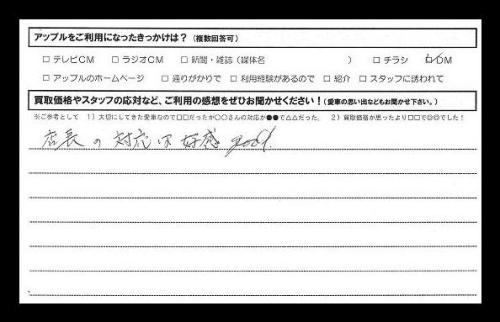 アップルをご利用になったきっかけは？（複数回答可）
□ テレビCM □ ラジオCM □ 新聞・雑誌（媒体名 ） □ チラシ □ DM
□ アップルのホームページ □ 通りがかりで □ 利用経験があるので □ 紹介 □ スタッフに誘われて
買取価格やスタッフの応対など、ご利用の感想をぜひお聞かせください！（愛車の思い出などもお聞かせ下さい。）
※ご参考として 1）大切にしてきた愛車なので□□だったが○○さんの対応が●●で△△だった。 2）買取価格が思ったより□□で◎◎でした！
店長の対応は好感 good.